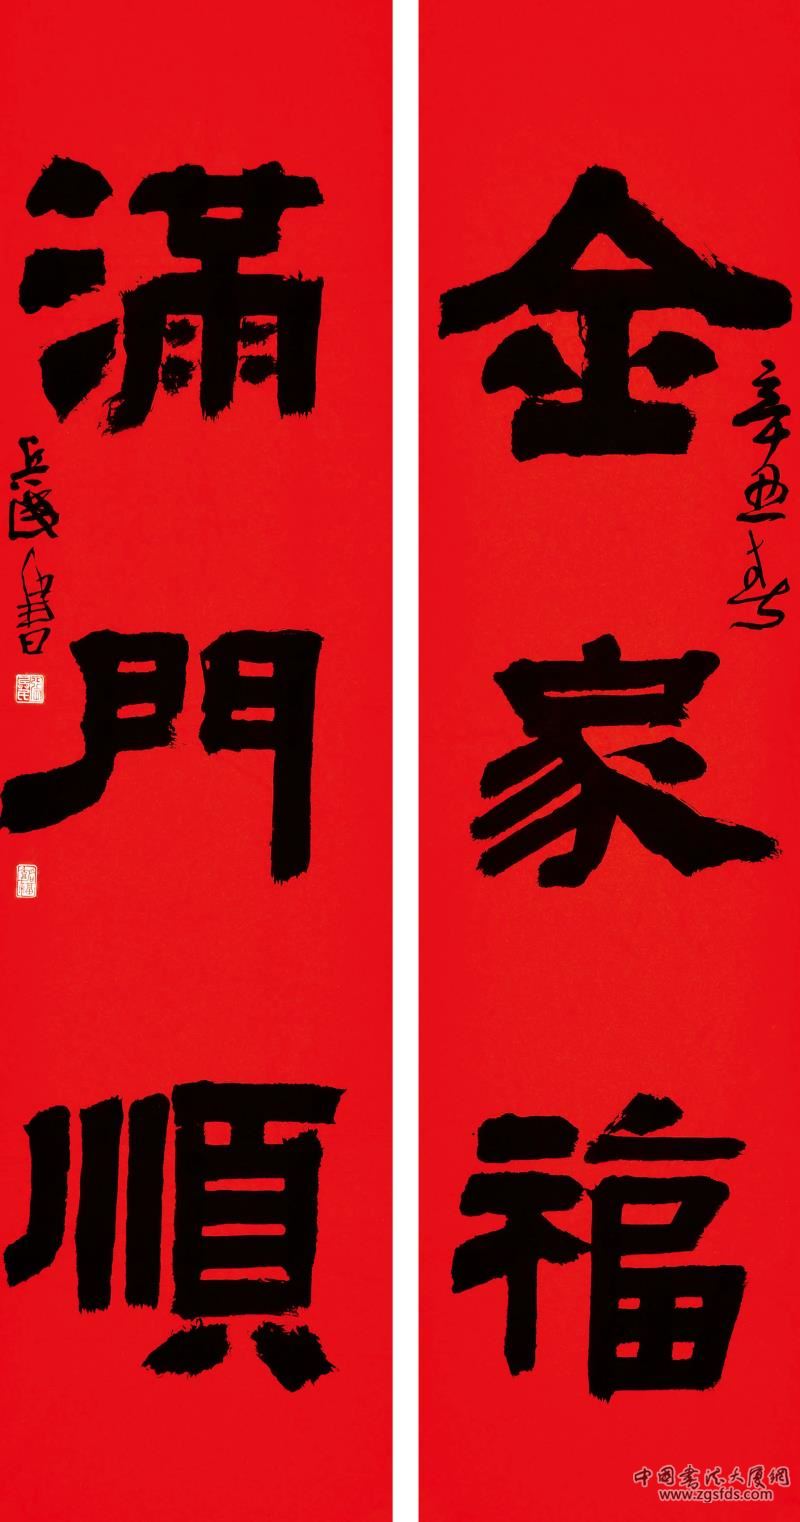 金家福
辛丑春
滿門順
兵國書
中国書法大厦網
www.zgsfds.com